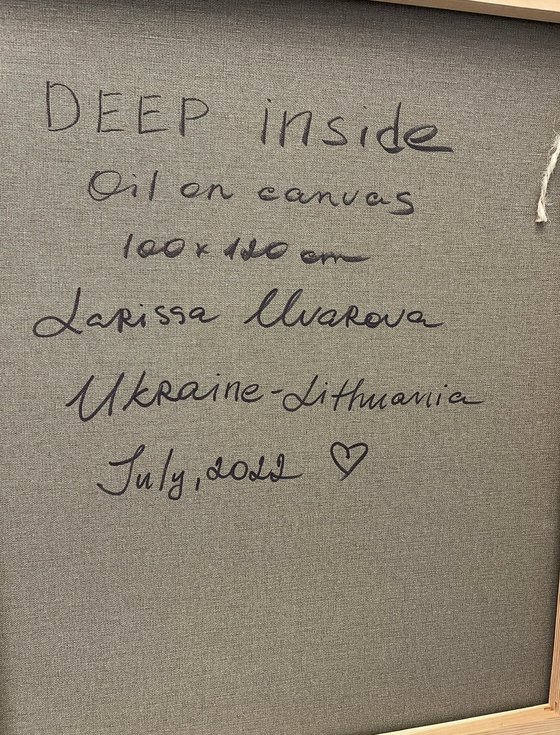 DEEP inside
Oil on canvas
100 x 120 cm
Larissa Uvarova
Ukraine-Lithuania
July, 2022 ♡